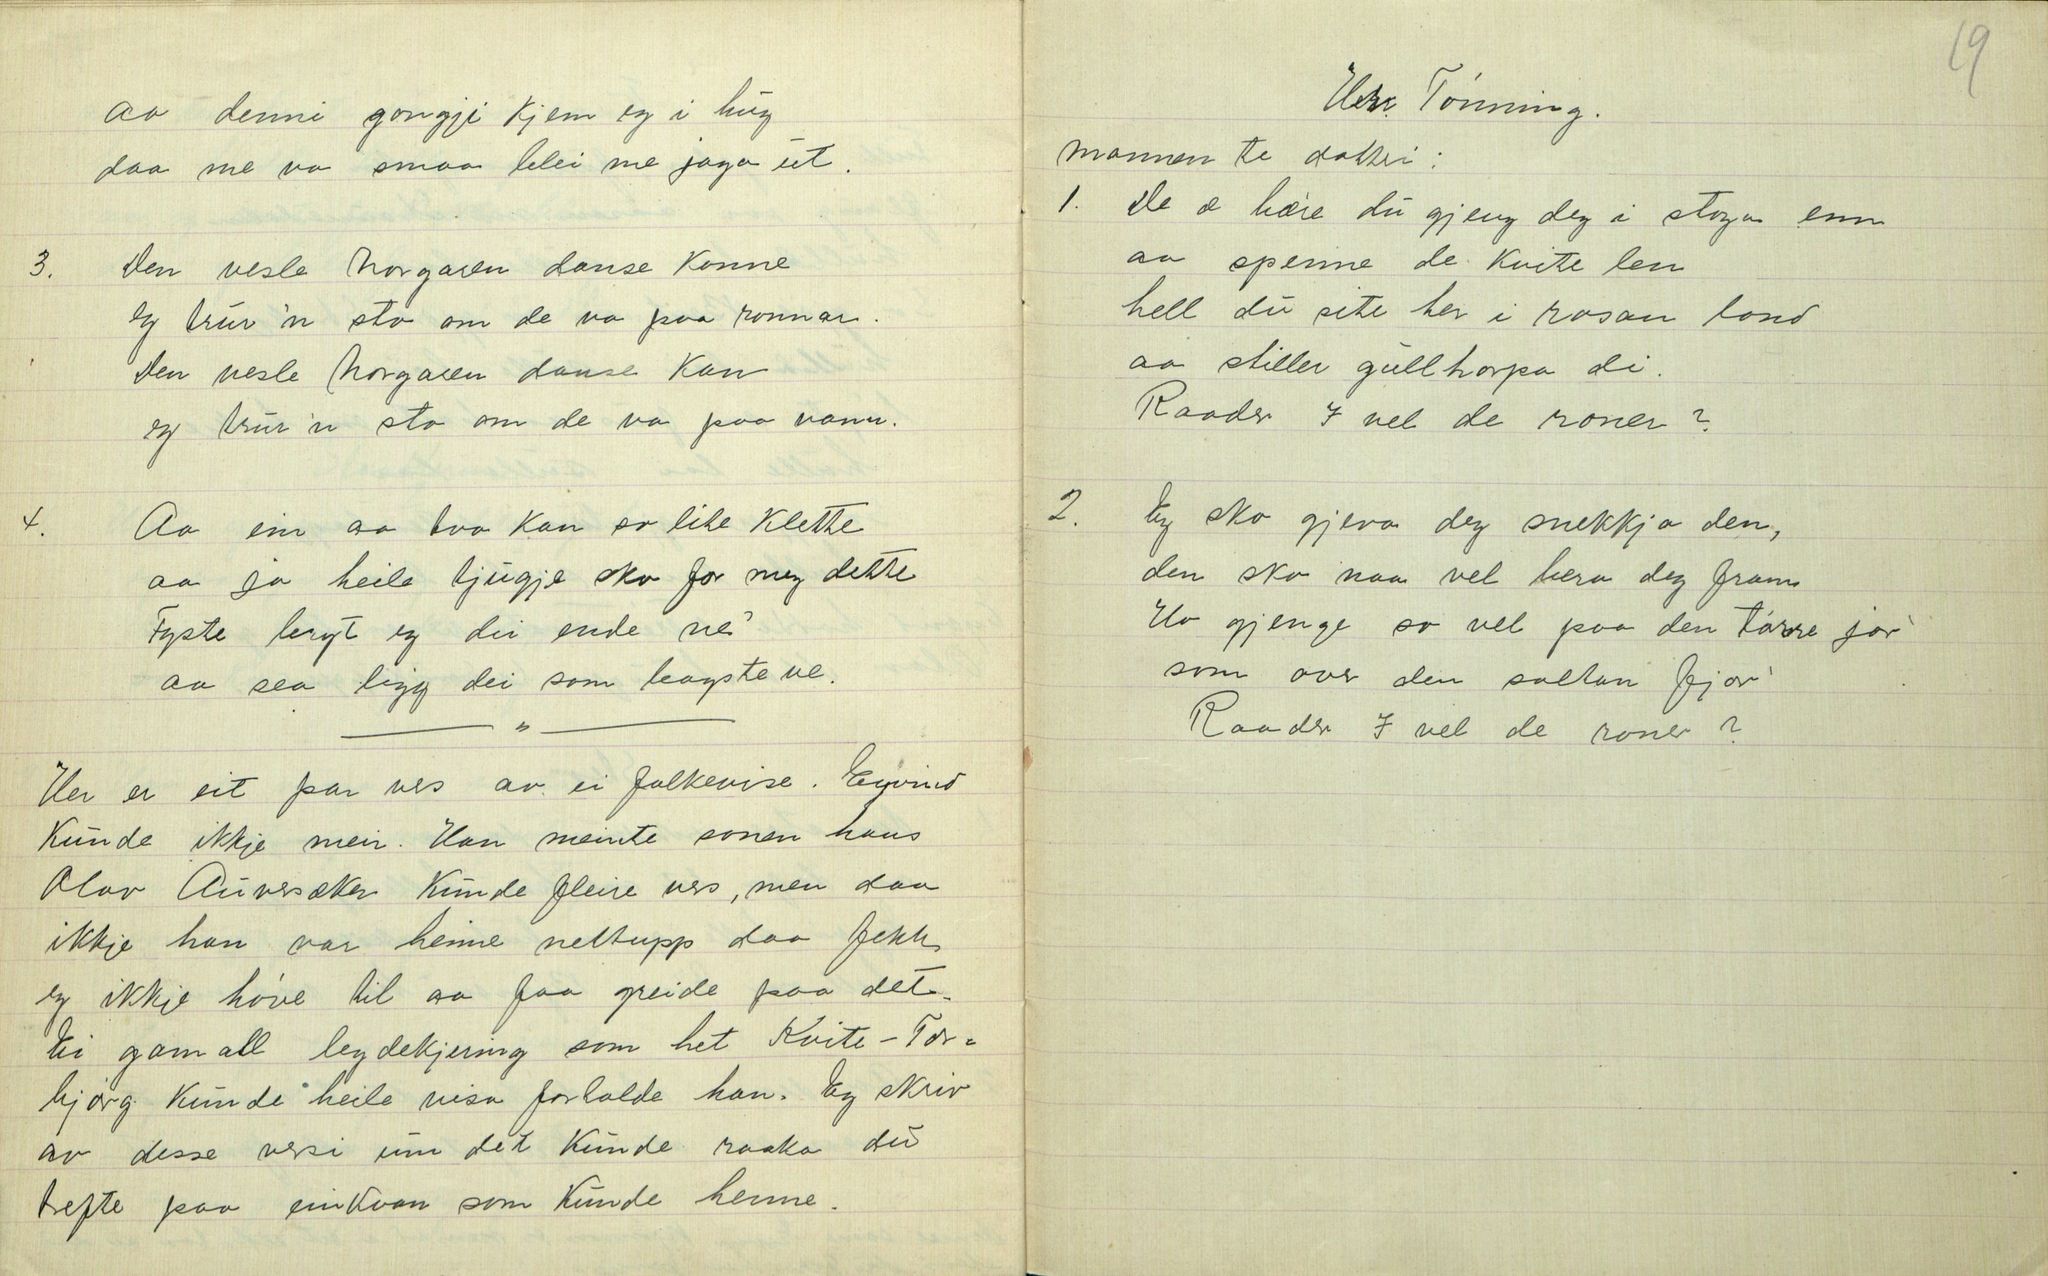 aa denni gongji kjem eg i hug
daa me va smaa blei me jaga ut.
3. Den vesle horgaren danse konne
eg trur'n sto om de va paa ronnar.
Den vesle horgaren danse kan
eg trur'n sto om de va paa vann.
4. Aa ein aa tvo kan so lite klette
aa ja heile tjugje sko for meg dette
Fyste leryt eg dei ende ne'
aa sea ligg dei som lagste ve.
— " —
Her er eit par vers av ei folkevise. Eyvind
Kunde ikkje meir. Han meinte sonen hans
Olav Auversaker kunde fleire vers, men daa
ikkje han var heime nettupp daa fekk
eg ikkje høve til aa faa greide paa det.
Ei gamall legdekjering som het Kvite-Tor-
bjørg kunde heile visa fortalde han. Eg skriv
av desse versi um det kunde raaka du
trefte paa einkvan som kunde henne.
19
Herr Tønning.
mannen te dotteri:
1. De æ bære du gjeng deg i stoga enn
aa spenne de kvite len
hell du site her i rosan lond
aa stiller gullhorpa di.
Raader I vel de roner?
2. Eg sko gjeva deg snekkja den,
den sko naa vel bera deg fram
Ho gjenge so vel paa den tørre jor'
som over den saltan fjor'
Raader I vel de roner?